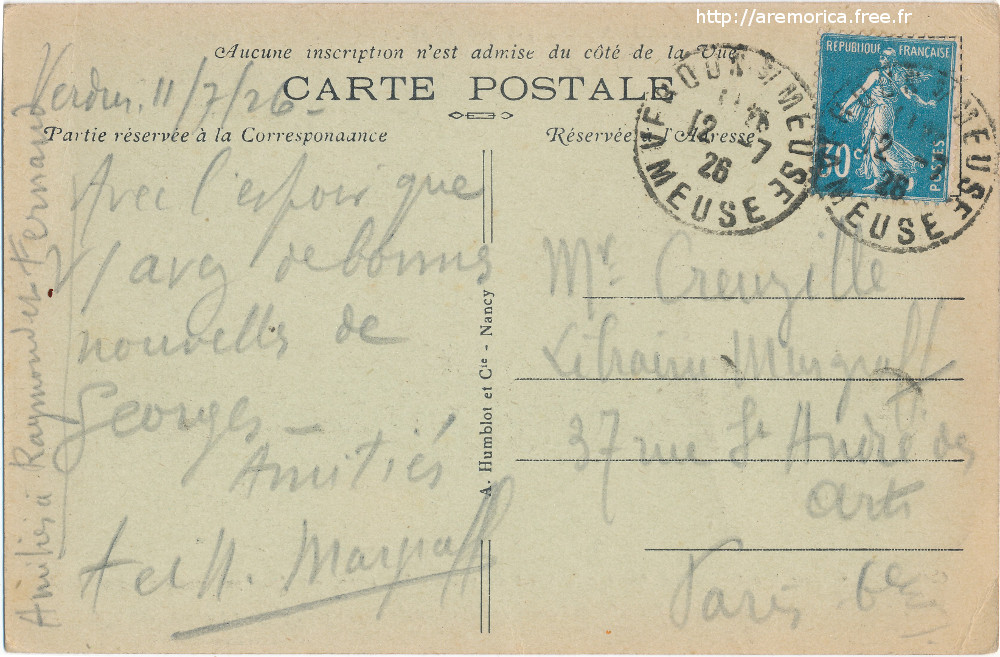 http://aremorica.free.fr
Aucune inscription n'est admise du côté de la Vue
CARTE POSTALE
Partie réservée à la Correspondance
Réservée l'Adresse
Verdun 11/7/26-
Avec l'espoir que
V/ avez de bonnes
nouvelles de
Georges-
Amitiés
A et H. Margraff
Amitiés à Raymond et Fernand
A. Humblot et Cie - Nancy
RÉPUBLIQUE FRANÇAISE
30c
POSTES
VERDUN S/ MEUSE
12 -7
26
MEUSE
MEUSE
12 -7
26
MEUSE
Mr. Creuzille
Librairie Margraff
37 rue St André des
Arts
Paris 6eme